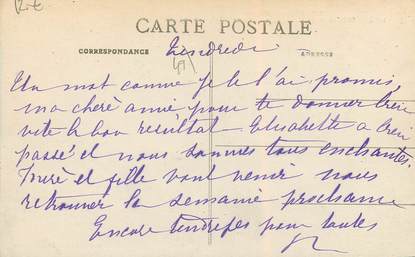 R-E
CARTE POSTALE
CORRESPONDANCE
ADRESSE
Vendredi
49
Un mot comme je te l'ai promis,
ma chère amie pour te donner bien
vite le bon résultat - Elisabette a bien
passé et nous sommes tous enchantés.
et fille vont venir nous
retrouver la semaine prochaine
Encore tendresses pour toutes